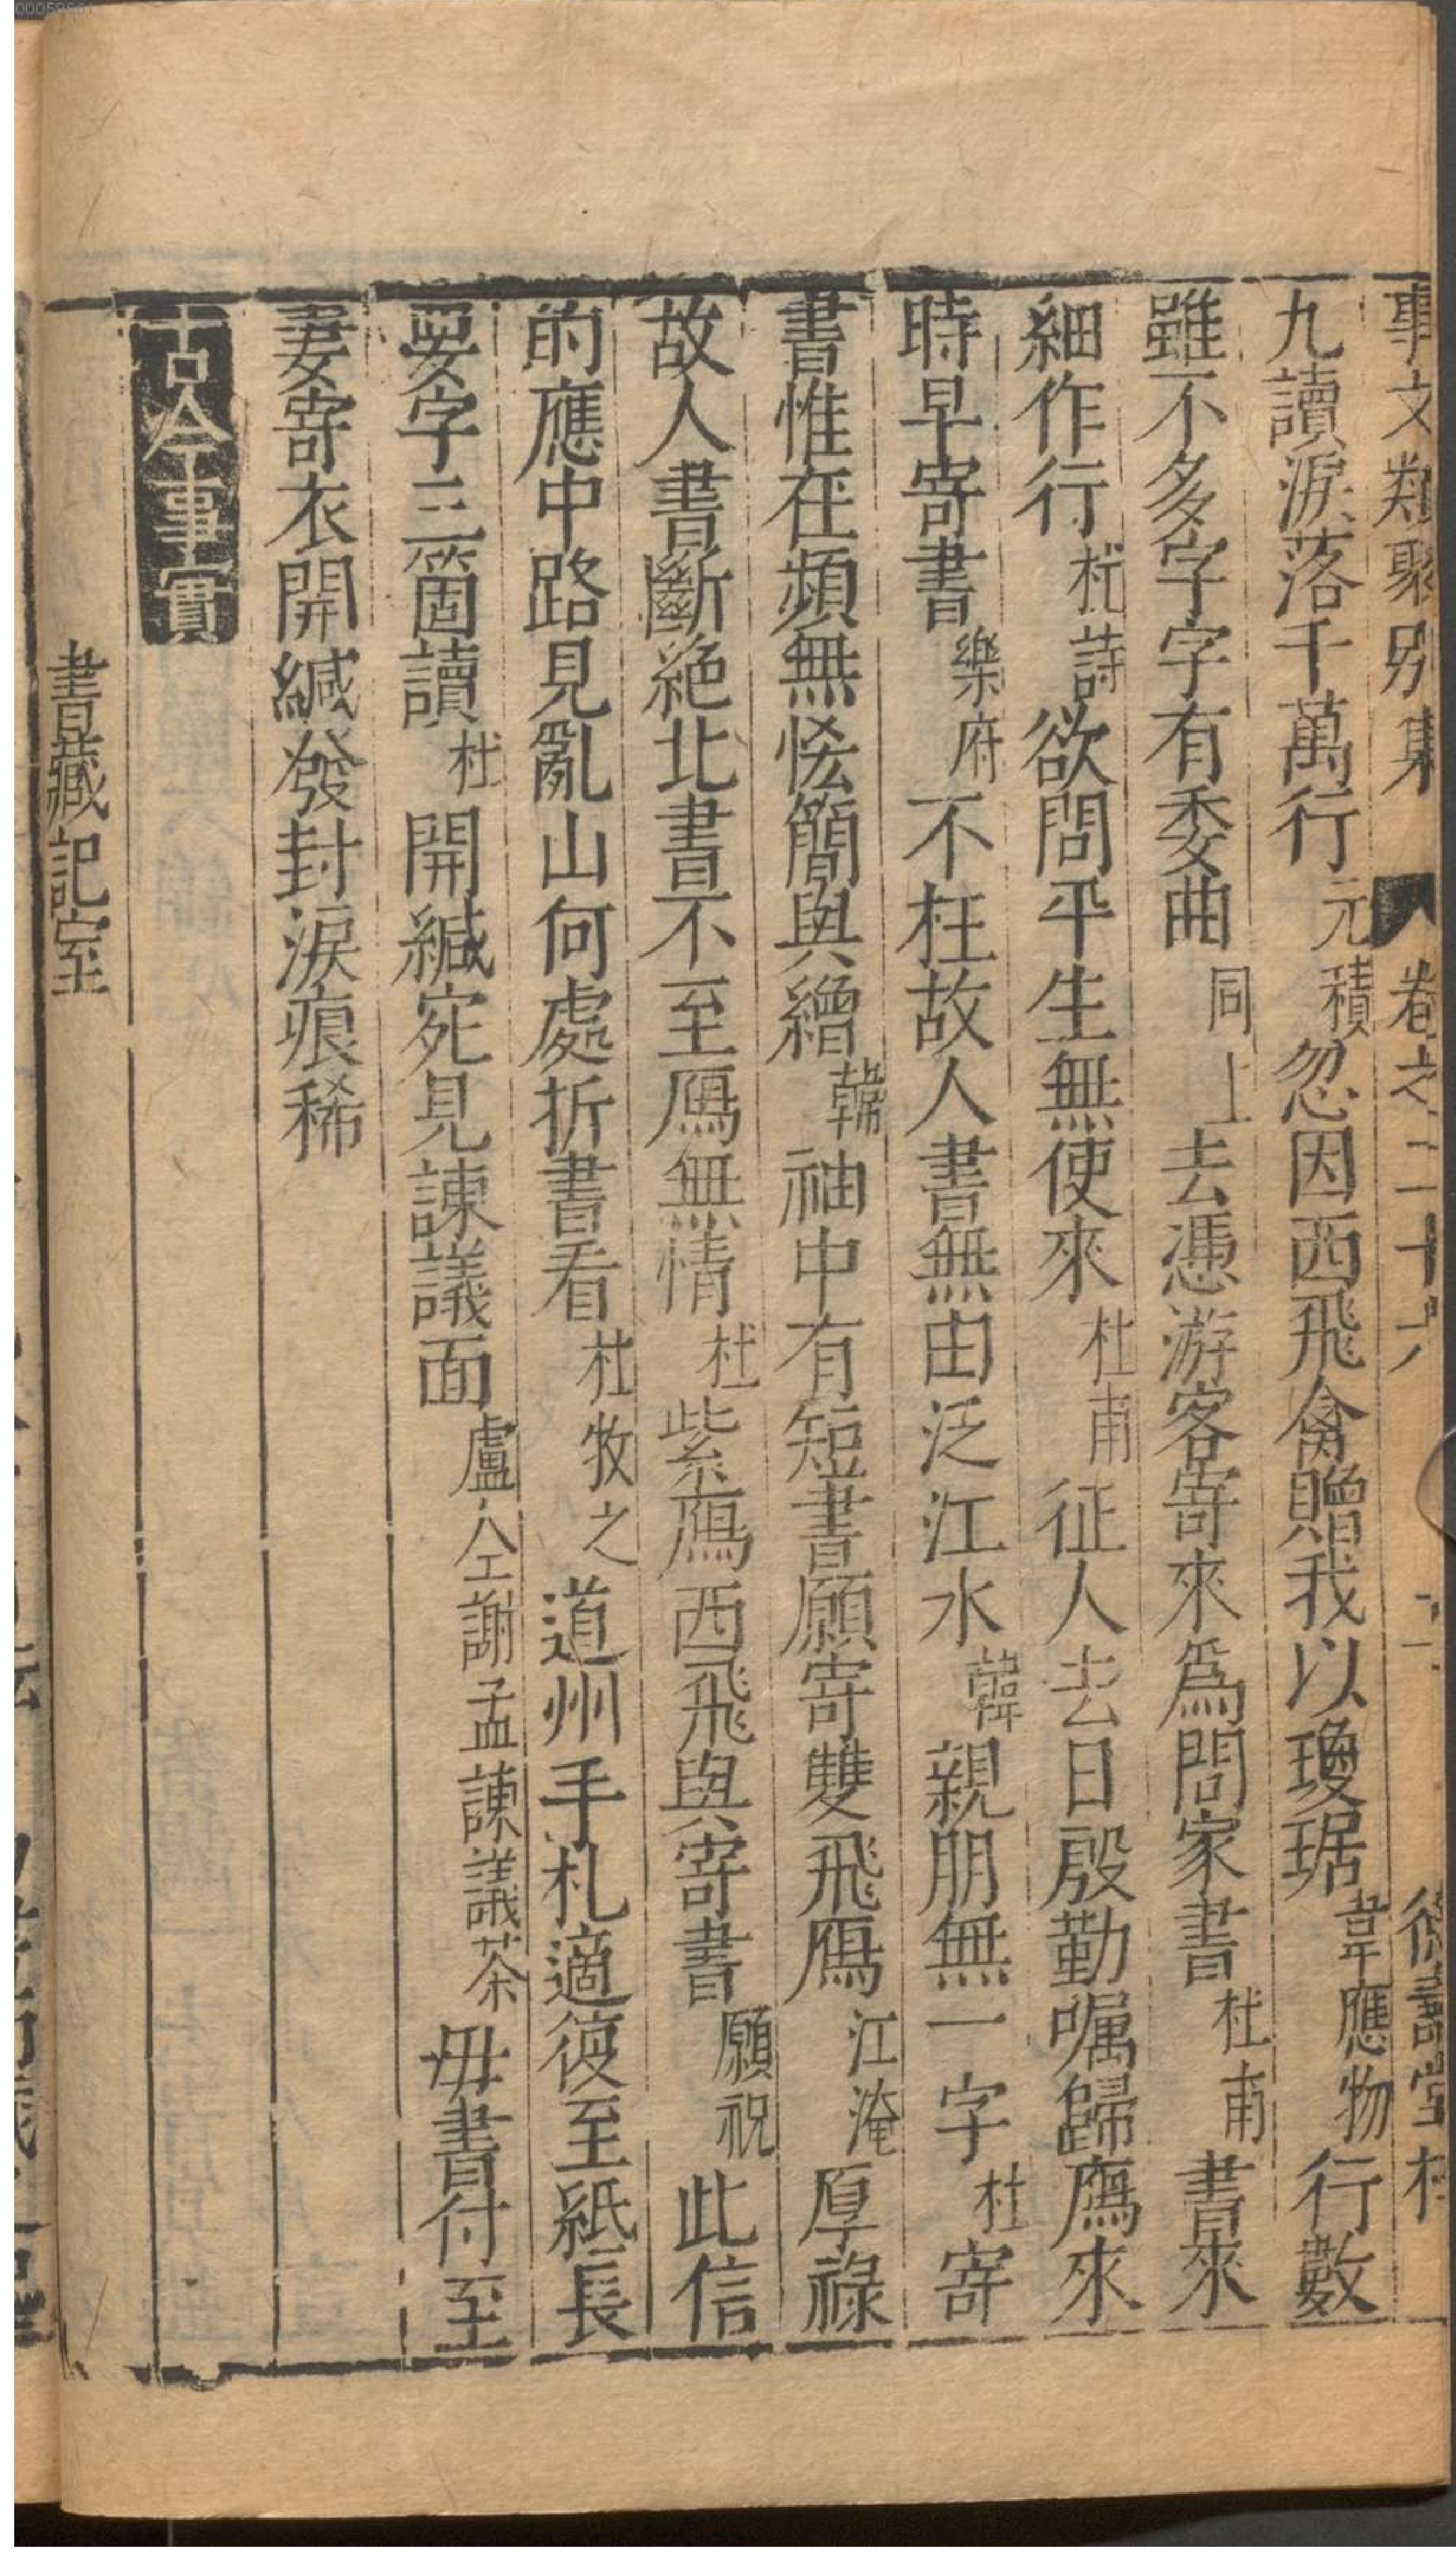 事文類聚別集 卷之二十六 德壽堂梓
九讀淚落千萬行元積忽因西飛禽贈我以瓊琚韋應物行數
雖不多字字有委曲同上去憑游客寄來爲問家書杜甫書來
細作行杜詩欲問平生無使來杜甫征人去日殷勤嘱歸鴈來
時早寄書樂府不枉故人書無由泛江水韓親朋無一字杜寄
書惟在頻無恡簡與繒韓袖中有短書願寄雙飛鴈江淹厚祿
故人書斷絕北書不至鴈無情杜紫鴈西飛與寄書願祝此信
的應中路見亂山何處折書看杜牧之道州手札適復至紙長
要字三箇讀杜開緘宛見諫議面盧仝謝孟諫議茶毋書付至
妻寄衣開緘發封淚痕稀
古今事實
書藏記室